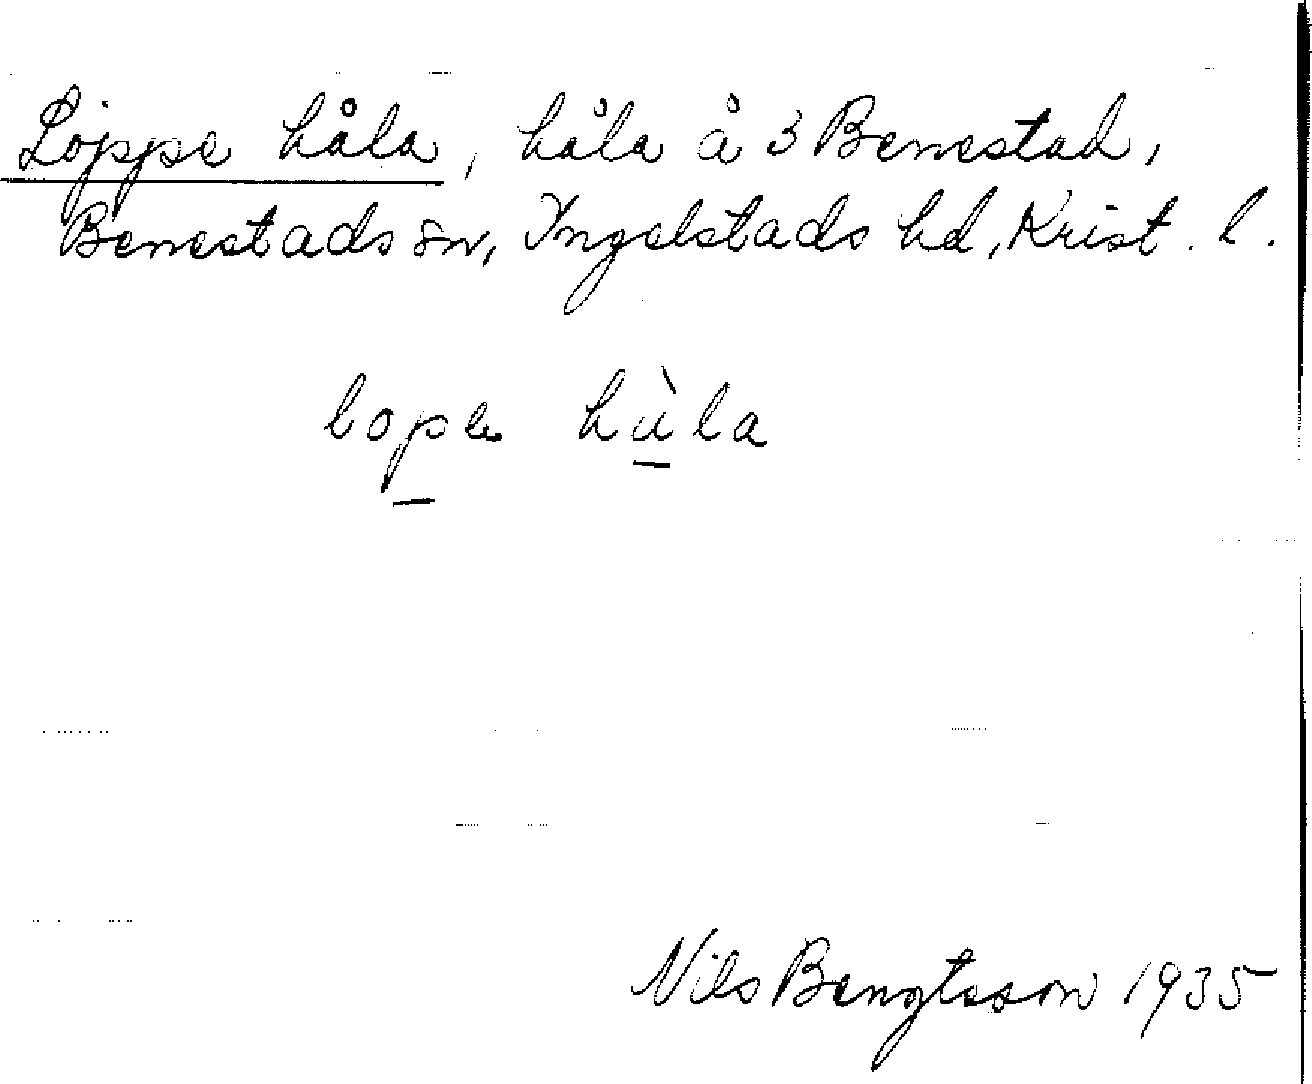 Loppe håla, håla å 3 Benestad,
Benestads sn, Ingelstads hd, Krist. l.
lope hùla
Nils Bengtsson 1935